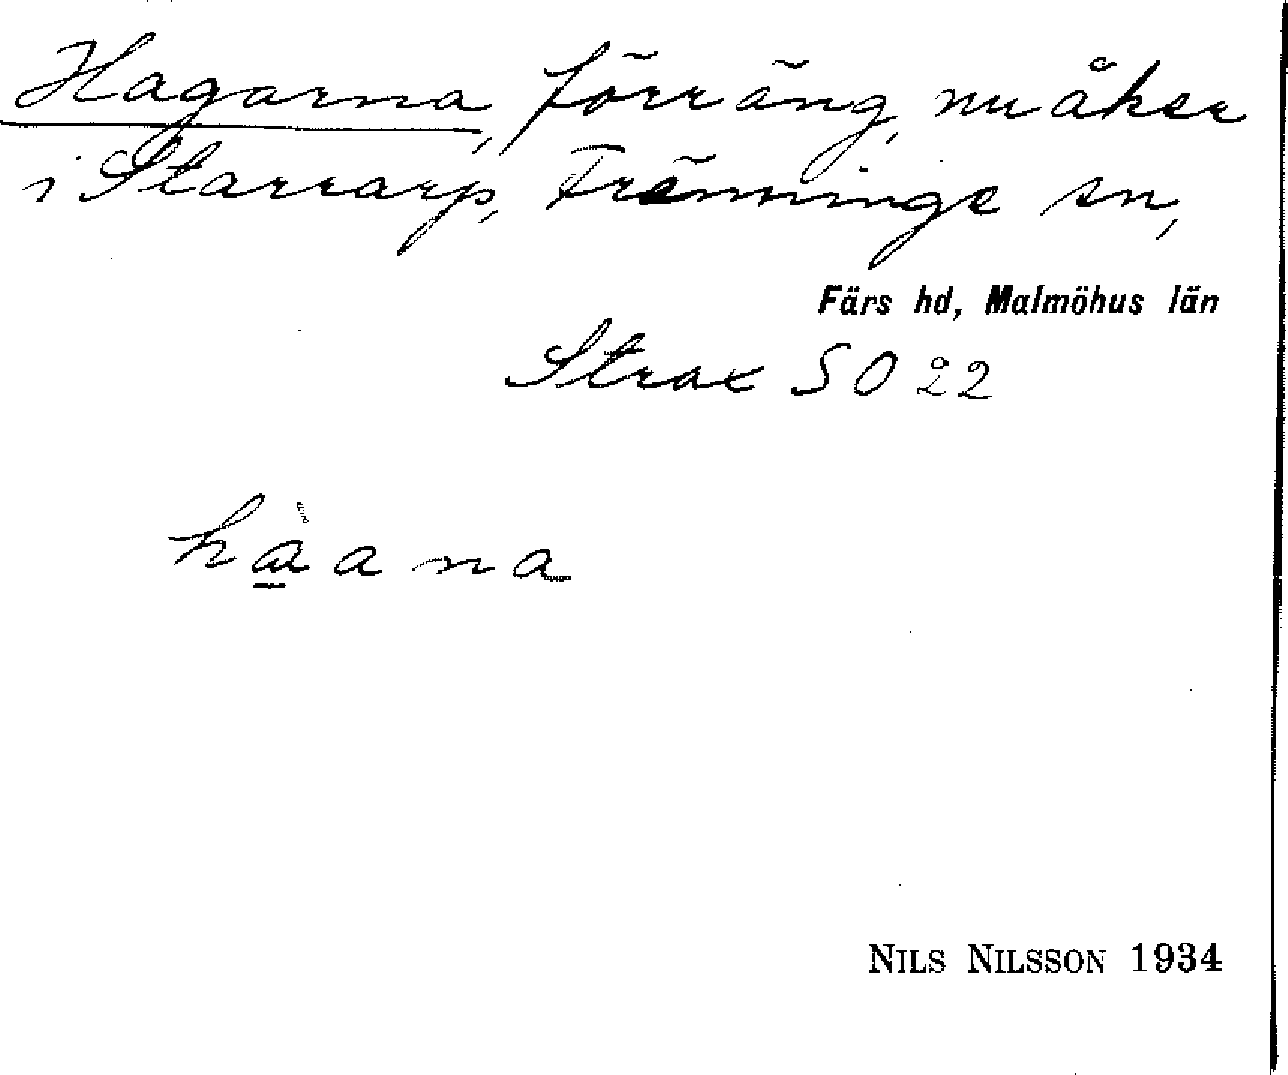 Hagarna, förr äng, nu åker
i Starrarp, Tränninge sn,
Färs hd, Malmöhus län
Strax SO 22
hàana
NILS NILSSON 1934